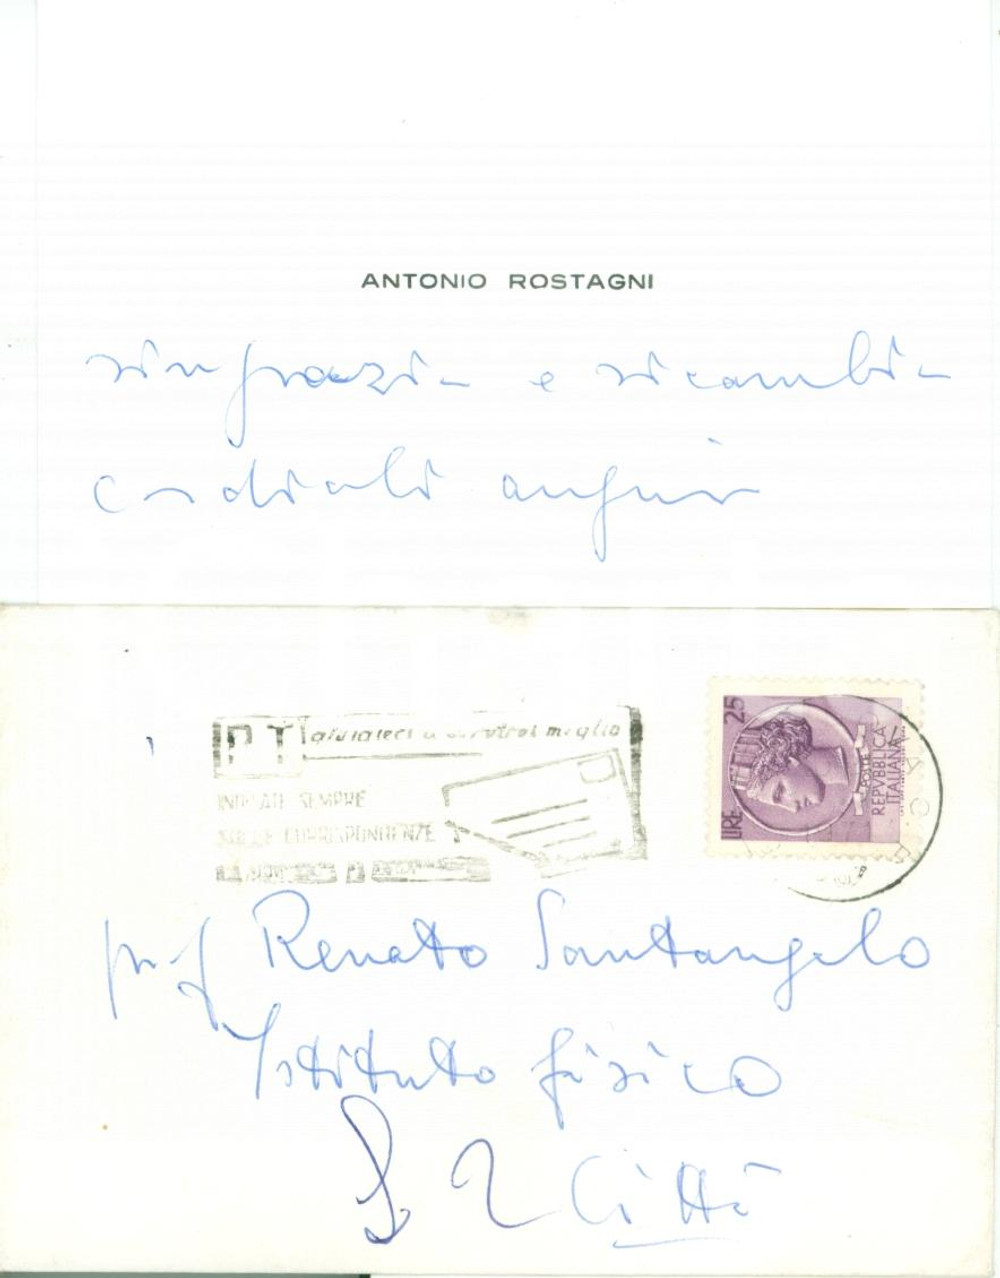 ANTONIO ROSTAGNI
ringrazia e ricambia
cordiali auguri
PT aiutateci a servirvi meglio
INDICATE SEMPRE
SULLE CORRISPONDENZE
LIRE 25
POSTE
REPVBBLICA
ITALIANA
prof Renato Santangelo
Istituto fisico
Città